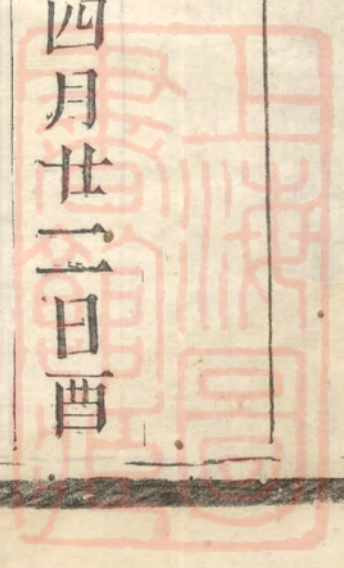 四月廿二日酉
上海圖
書館藏